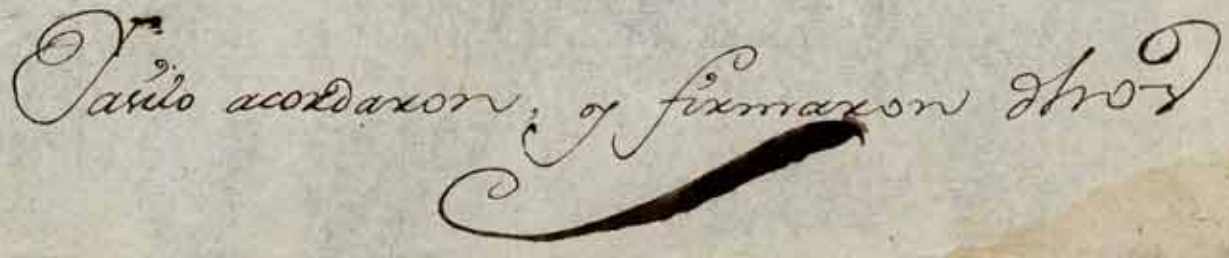 Yasilo acordaron, y firmaron dhos